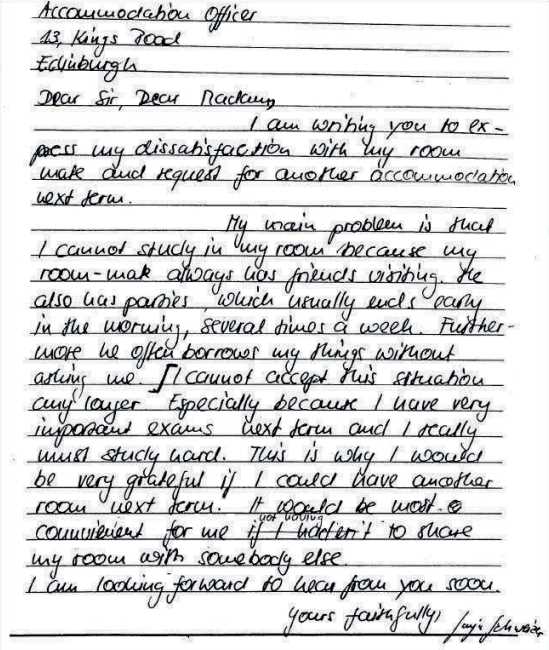 Accommodation Officer
13, Kings Road
Edinburgh
Dear Sir, Dear Madam,
I am writing you to ex-
press my dissatisfaction with my room
mate and request for another accommodation
next term.
My main problem is that
I cannot study in my room because my
room-mate always has friends visiting. He
also has parties, which usually ends early
in the morning, several times a week. Further-
more he often borrows my things without
asking me. I cannot accept this situation
any longer. Especially because I have very
important exams next term and I really
must study hard. This is why I would
be very grateful if I could have another
room next term. It would be most
convenient for me if I hadn't not having to share
my room with somebody else.
I am looking forward to hear from you soon.
Yours faithfully,